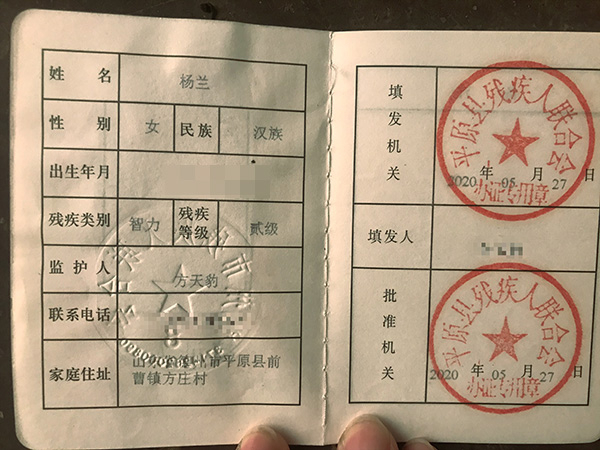 姓名 杨兰
性别 女 民族 汉族
出生年月
残疾类别 智力 残疾等级 贰级
监护人 方天豹
联系电话
家庭住址 山东省德州市平原县前
曹镇方庄村
填发机关
平原县残疾人联合会
2020 年 05 月 27 日
办证专用章
填发人
批准机关
平原县残疾人联合会
2020 年 05 月 27 日
办证专用章